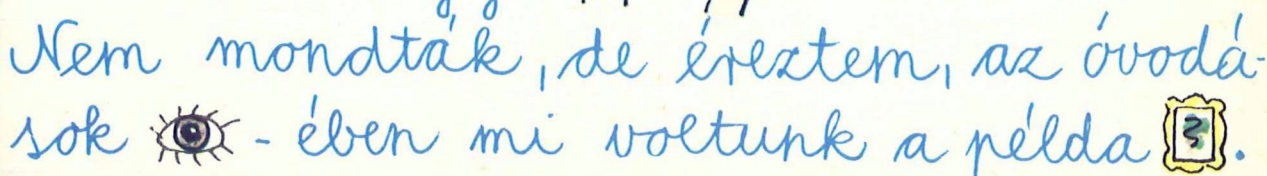 Nem mondták, de éreztem, az óvodá-
sok - ében mi voltunk a példa .